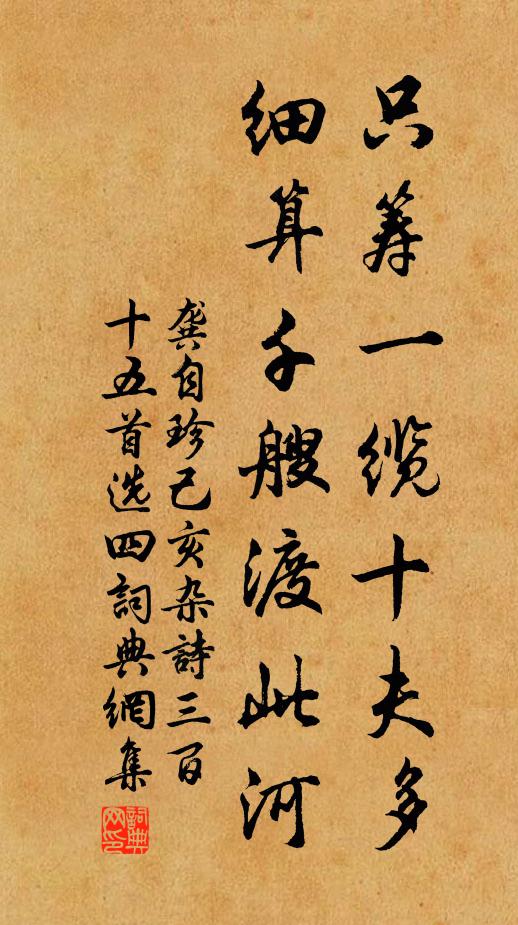 只筹一缆十夫多
细算千艘渡此河
龚自珍己亥杂詩三百
十五首选四詞典網集
詞典网印